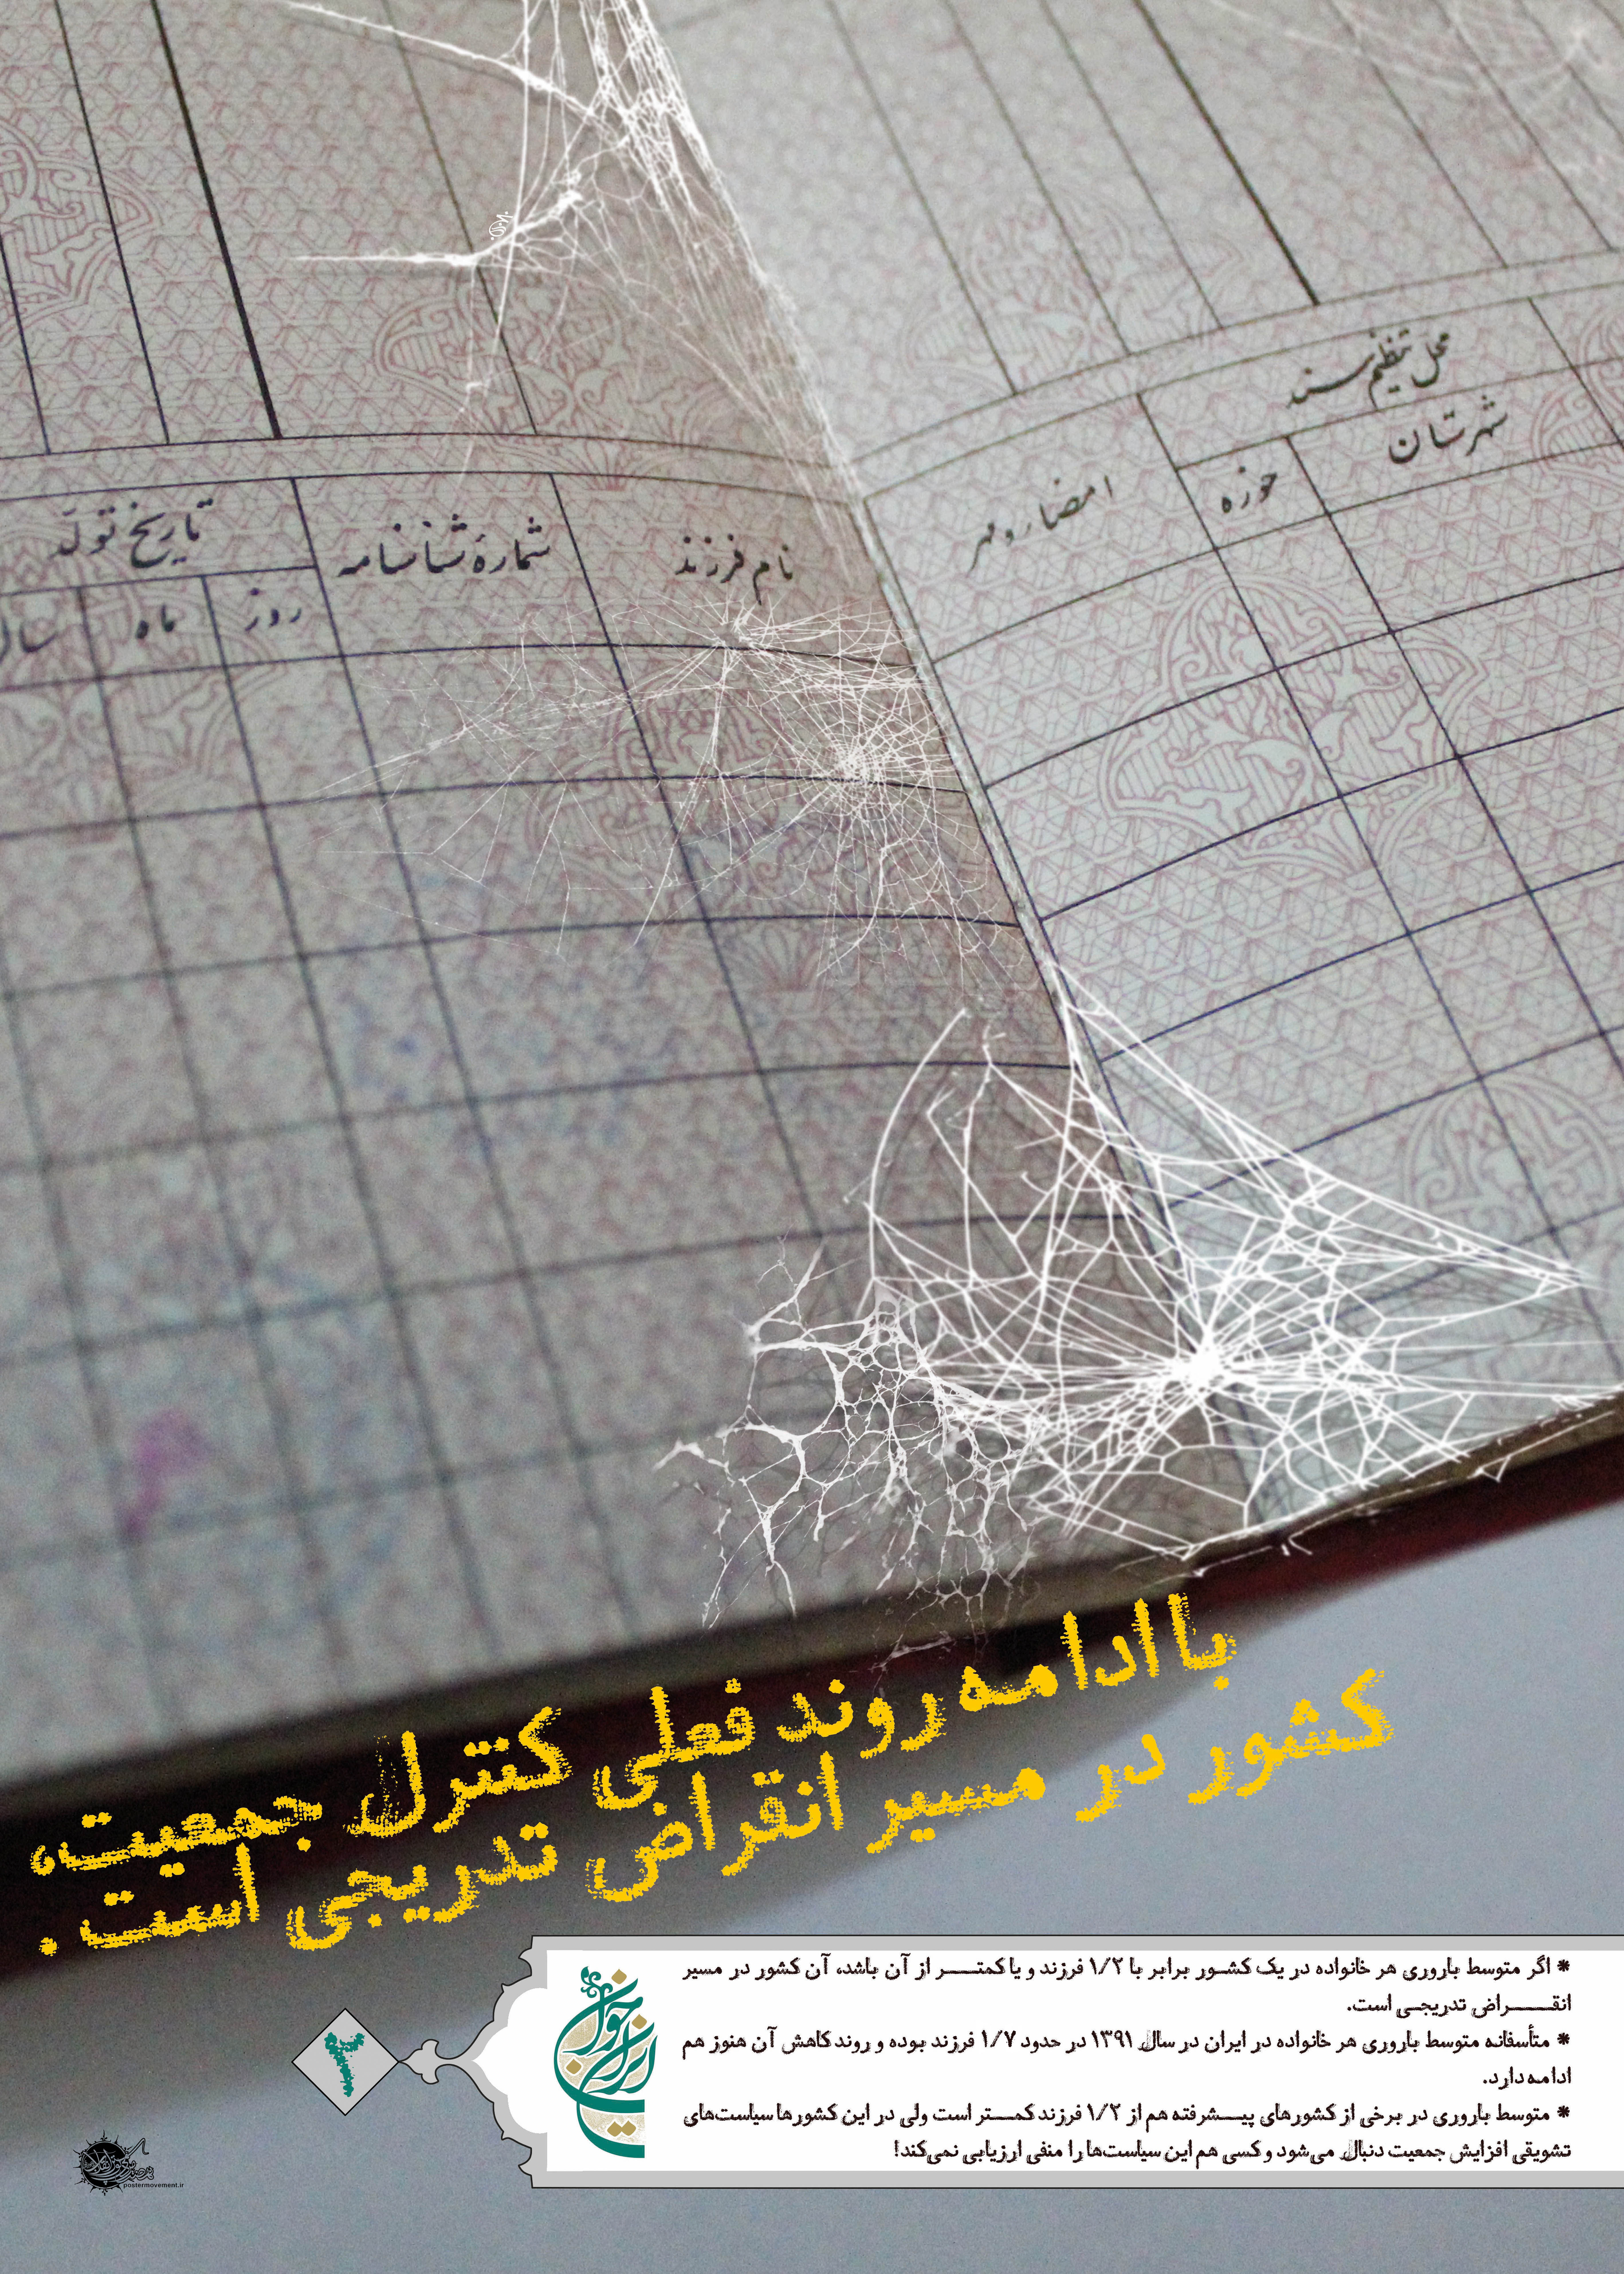 محل تنظیم سند
شهرستان
حوزه
امضاء و مهر
نام فرزند
شمارهٔ شناسنامه
تاریخ تولّد
روز
ماه
سال
با ادامه روند فعلی کنترل جمعیت،
کشور در مسیر انقراض تدریجی است.
* اگر متوسط باروری هر خانواده در یک کشور برابر با ۱/۲ فرزند و یا کمتر از آن باشد، آن کشور در مسیر
انقراض تدریجی است.
* متأسفانه متوسط باروری هر خانواده در ایران در سال ۱۳۹۱ در حدود ۱/۷ فرزند بوده و روند کاهش آن هنوز هم
ادامه دارد.
* متوسط باروری در برخی از کشورهای پیشرفته هم از ۱/۲ فرزند کمتر است ولی در این کشورها سیاست‌های
تشویقی افزایش جمعیت دنبال می‌شود و کسی هم این سیاست‌ها را منفی ارزیابی نمی‌کند!
ایران جوان
۲
postermovement.ir